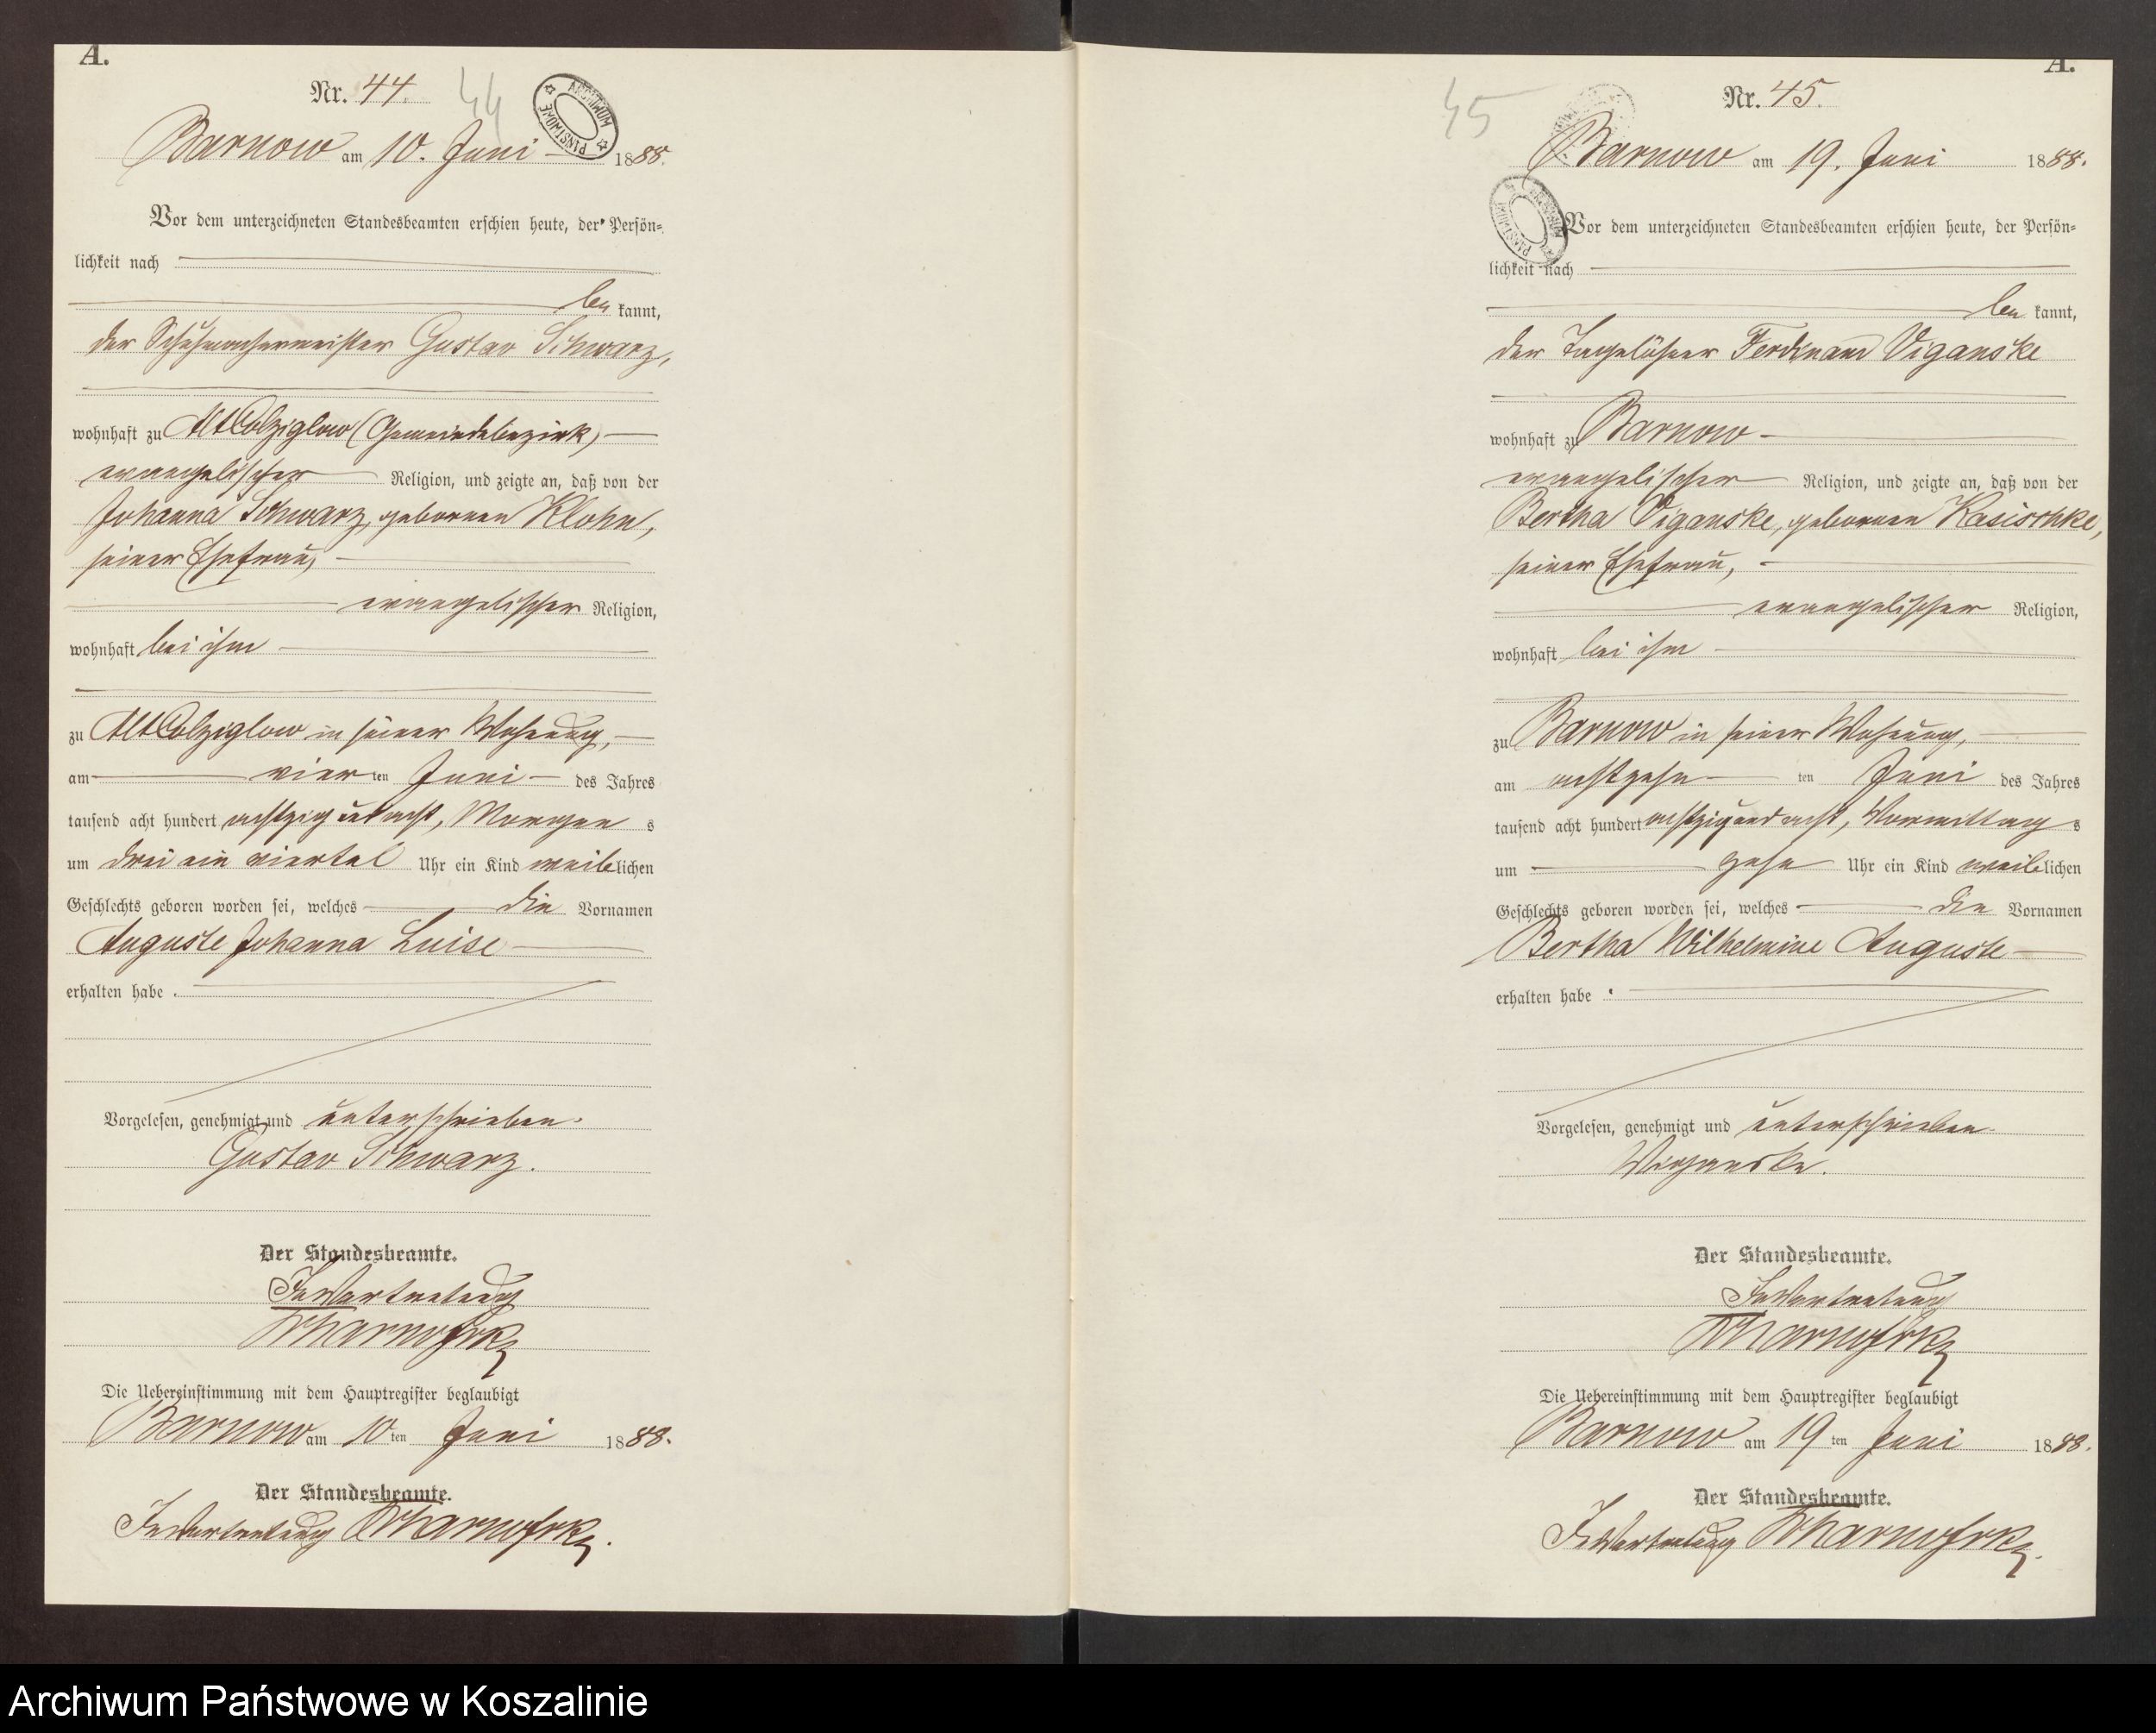 A.
Nr. 44.
44
ARCHIWUM PAŃSTWOWE
Barnow am 10. Juni 1888.
Vor dem unterzeichneten Standesbeamten erschien heute, der Persön=
lichkeit nach
be kannt,
der Schuhmachermeister Gustav Schwarz,
wohnhaft zu Alt Colziglow (Gemeindebezirk)
evangelischer Religion, und zeigte an, daß von der
Johanna Schwarz, gebornen Klohn,
seiner Ehefrau,
evangelischer Religion,
wohnhaft bei ihm
zu Alt Colziglow in seiner Wohnung,
am vier ten Juni des Jahres
tausend acht hundert achtzig und acht, Morgen s
um drei ein viertel Uhr ein Kind weib lichen
Geschlechts geboren worden sei, welches die Vornamen
Auguste Johanna Luise
erhalten habe.
Vorgelesen, genehmigt und unterschrieben.
Gustav Schwarz.
Der Standesbeamte.
In Vertretung
Die Uebereinstimmung mit dem Hauptregister beglaubigt
Barnow am 10 ten Juni 1888.
Der Standesbeamte.
In Vertretung
A.
Nr. 45.
45
Barnow am 19. Juni 1888.
Vor dem unterzeichneten Standesbeamten erschien heute, der Persön=
lichkeit nach
be kannt,
der Tagelöhner Ferdinand Viganske
wohnhaft zu Barnow
evangelischer Religion, und zeigte an, daß von der
Bertha Viganske, gebornen Kasischke,
seiner Ehefrau,
evangelischer Religion,
wohnhaft bei ihm
zu Barnow in seiner Wohnung,
am achtzehn ten Juni des Jahres
tausend acht hundert achtzig und acht, Vormittag s
um zehn Uhr ein Kind weib lichen
Geschlechts geboren worden sei, welches die Vornamen
Bertha Wilhelmine Auguste
erhalten habe.
Vorgelesen, genehmigt und unterschrieben.
Wiganske.
Der Standesbeamte.
In Vertretung
Die Uebereinstimmung mit dem Hauptregister beglaubigt
Barnow am 19 ten Juni 1888.
Der Standesbeamte.
In Vertretung
Archiwum Państwowe w Koszalinie